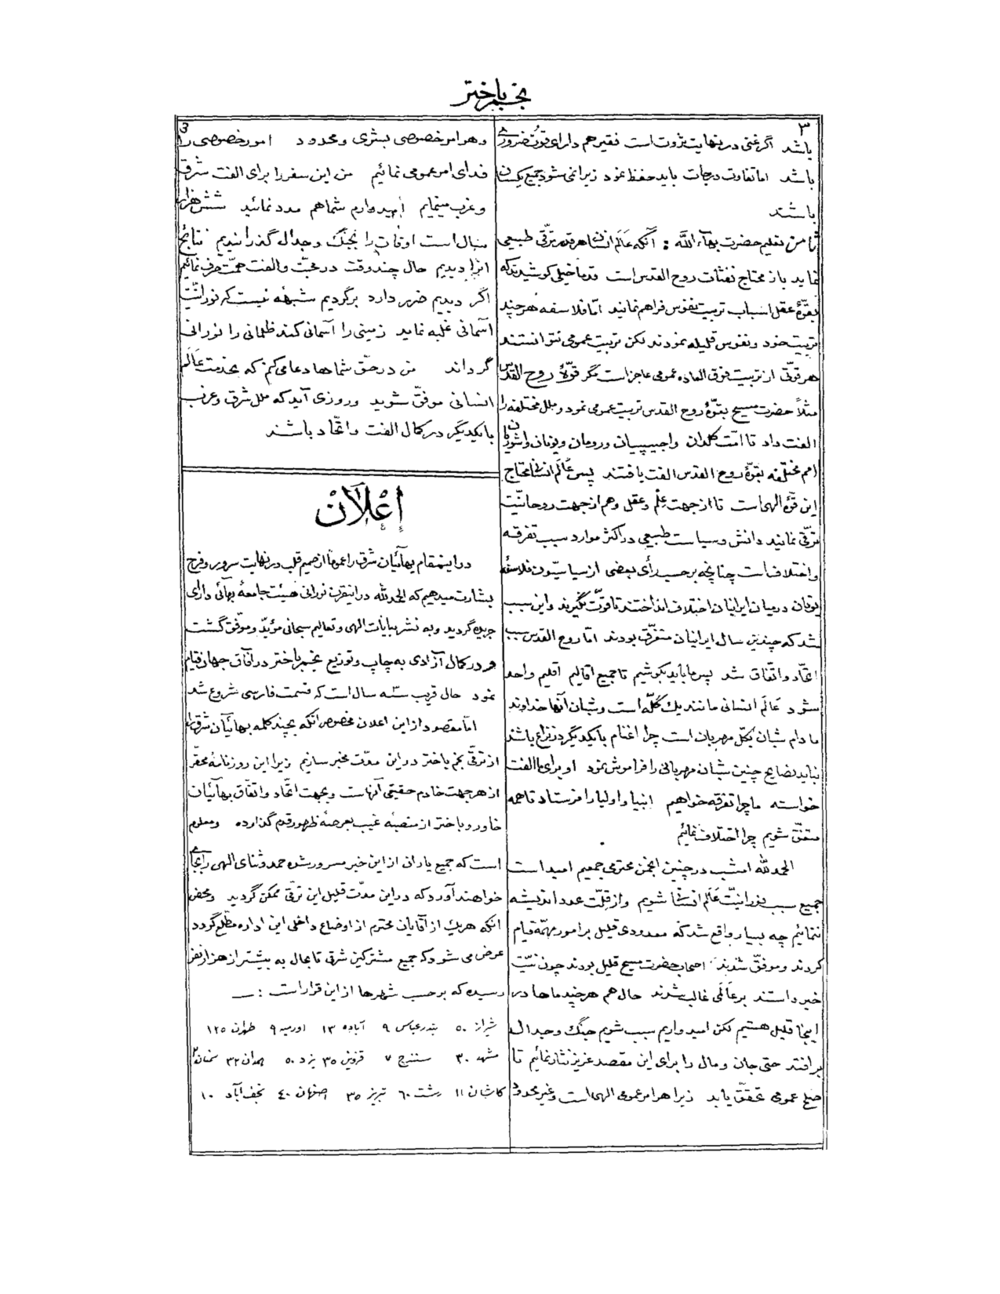 نجم باختر
۳
باشد اگر غنی در نهایت ثروت است فقیر هم دارای قوت ضروری
باشد اما تفاوت درجات باید حفظ نمود زیرا نمی شود جمیع یکسان
باشند
ثامن تعلیم حضرت بهاء الله : آنکه عالم انسانی هر قدر ترقی طبیعی
نماید باز محتاج نفثات روح القدس است قدما خیلی کوشیدند که
بقوهٔ عقل اسباب تربیت نفوس فراهم نمایند اما فلاسفه هر چند
تربیت خود و نفوس قلیله نمودند لکن تربیت عمومی نتوانستند
هر قوتی از تربیت فوق العاده عمومی عاجز است مگر قوهٔ روح القدس
مثلاً حضرت مسیح بقوهٔ روح القدس تربیت عمومی نمود و ملل مختلفه را
الفت داد تا امت کلدان واجیپسیان و رومان و یونان و اشوریان
امم مختلفه بقوهٔ روح القدس الفت یافتند پس عالم انسانی محتاج
این قوهٔ الهی است تا از جهت علم و عقل و هم از جهت روحانیت
ترقی نمایند دانش و سیاست طبیعی در اکثر موارد سبب تفرقه
و اختلاف است چنانچه بر حسب رأی بعضی از سیاسیون فلاسفه
یونان در میان ایرانیان اختلاف انداختند تا قوت نگیرند و این سبب
شد که چندین سال ایرانیان متفرق بودند اما روح القدس سبب
اتحاد و اتفاق شد پس ما باید بکوشیم تا جمیع اقالیم اقلیم واحد
شود عالم انسانی مانند یک گله است و شبان آنها خداوند
ما دام شبان بکل مهربان است چرا اغنام با یکدیگر در نزاع باشد
نباید نصایح چنین شبان مهربانی را فراموش نمود او برای ما الفت
خواسته ما چرا تفرقه خواهیم انبیا و اولیا را فرستاد تا همه
متفق شویم چرا اختلاف نمائیم
الحمد لله امشب در چنین انجمن محترمی جمعیم امید است
جمیع سبب نورانیت عالم انسانی شویم و از قلت عدد اندیشه
ننمائیم چه بسیار واقع شد که معدودی قلیل بر امور مهمه قیام
کردند و موفق شدند اصحاب حضرت مسیح قلیل بودند چون نیت
خیر داشتند بر عالمی غالب شدند حال هم هر چند ماها در
اینجا قلیل هستیم لکن امیدواریم سبب شویم جنگ و جدال
برافتد حتی جان و مال را برای این مقصد عزیز نثار نمائیم تا
صلح عمومی تحقق یابد زیرا هر امر عمومی الهی است و غیر محدود
و هر امر خصوصی بشری و محدود امور خصوصی را
فدای امر عمومی نمائیم من این سفر را برای الفت شرق
و غرب مینمایم امیدوارم شما هم مدد نمائید شش هزار
سال است اوقات را بجنگ و جدال گذراندیم نتائج
انرا دیدیم حال چند وقت در محبت و الفت همت صرف نمائیم
اگر دیدیم ضرر دارد برگردیم شبهه نیست که نورانیت
آسمانی غلبه نماید زمینی را آسمانی کند ظلمانی را نورانی
گرداند من در حق شماها دعا می کنم که بخدمت عالم
انسانی موفق شوید و روزی آید که ملل شرق و غرب
با یکدیگر در کمال الفت و اتحاد باشند
إعْلانْ
در اینمقام بهائیان شرق را عموماً از صمیم قلب در نهایت سرور و فرح
بشارت میدهیم که الحمد لله در اینقرن نورانی هیئت جامعهٔ بهائی دارای
جریده گردید و به نشر بیانات الهی و تعالیم سبحانی مؤید و موفق گشت
و در کمال آزادی به چاپ و توزیع نجم باختر در آفاق جهان قیام
نمود حال قریب سه سال است که قسمت فارسی شروع شد
اما مقصود از این اعلان مخصوص آنکه بچند کلمه بهائیان شرق را
از ترقی نجم باختر در این مدت مخبر سازیم زیرا این روزنامهٔ محقر
از هر جهت خادم حقیقی آنهاست و بجهت اتحاد و اتفاق بهائیان
خاور و باختر از منصهٔ غیب بعرصهٔ ظهور قدم گذارده و معلوم
است که جمیع یاران از این خبر مسرور شده حمد و ثنای الهی را بجا
خواهند آورد که در این مدت قلیل این ترقی ممکن گردید و محض
آنکه هر یک از آقایان محترم از اوضاع داخلی این اداره مطلع گردد
عرض می شود که جمیع مشترکین شرق تا بحال به بیشتر از هزار نفر
رسیده که بر حسب شهرها از این قرار است : —
شیراز ۵۰ بندر عباس ۹ آباده ۱۳ اورمیه ۹ طهران ۱۲۵
مشهد ۳۰ سنندج ۷ قزوین ۳۵ یزد ۵۰ همدان ۳۲ سمنان
کاشان ۱۱ رشت ۶۰ تبریز ۳۵ اصفهان ۴۰ نجف آباد ۱۰